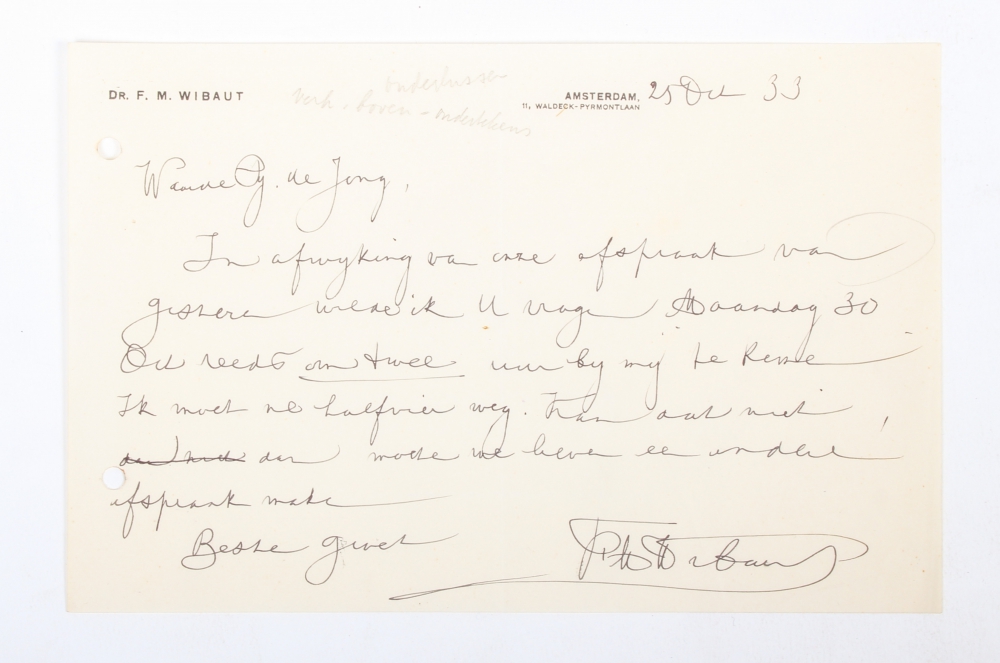 DR. F. M. WIBAUT
AMSTERDAM, 25 Oct 33
11, WALDECK-PYRMONTLAAN
Waarde de Jong,
In afwyking van onze afspraak van
gisteren wilde ik U vragen Maandag 30
Oct reeds om twee uur by my te komen
Ik moet na halfvier weg. Kan dat niet,
dan moeten we liever een andere
afspraak maken
Beste groet
FM Wibaut